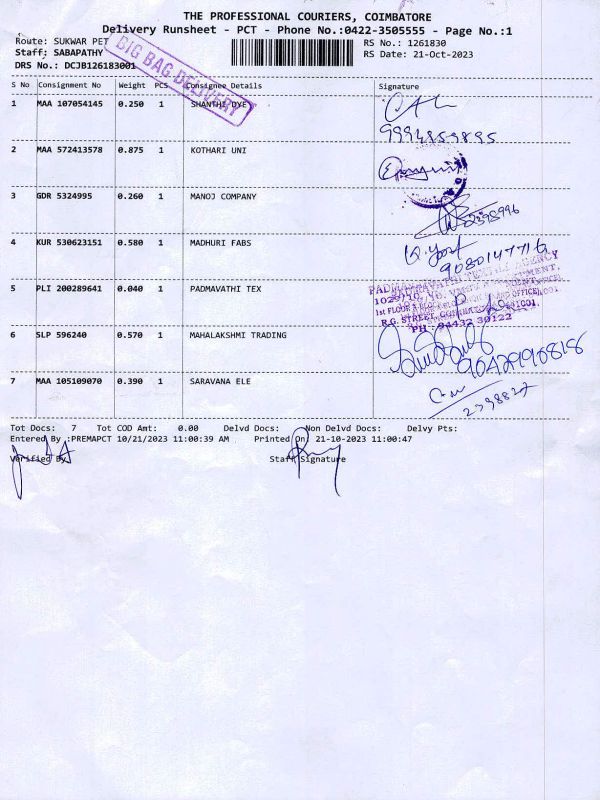 THE PROFESSIONAL COURIERS, COIMBATORE
Delivery Runsheet - PCT - Phone No.:0422-3505555 - Page No.:1
Route: SUKWAR PET
RS No.: 1261830
Staff: SABAPATHY
RS Date: 21-Oct-2023
DRS No.: DCJB126183001
BIG BAG DELIVERY
S No Consignment No Weight PCS Consignee Details Signature
1 MAA 107054145 0.250 1 SHANTHI DYE
9994859895
2 MAA 572413578 0.875 1 KOTHARI UNI
3 GDR 5324995 0.260 1 MANOJ COMPANY
2398996
4 KUR 530623151 0.580 1 MADHURI FABS
9080147716
5 PLI 200289641 0.040 1 PADMAVATHI TEX
R.G. STREET,
PH : 94432 30122
6 SLP 596240 0.570 1 MAHALAKSHMI TRADING
9042990818
7 MAA 105109070 0.390 1 SARAVANA ELE
2398827
Tot Docs: 7 Tot COD Amt: 0.00 Delvd Docs: Non Delvd Docs: Delvy Pts:
Entered By :PREMAPCT 10/21/2023 11:00:39 AM Printed On 21-10-2023 11:00:47
Verified By Staff Signature